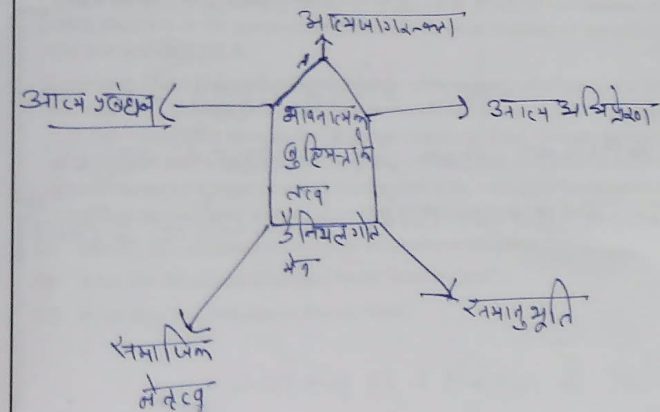 आत्मजागरूकता
आत्म प्रबंधन
आत्म अभिप्रेरणा
भावनात्मक
बुद्धिमत्ता के
तत्व
डेनियल गोल
मेन
समानुभूति
सामाजिक
नेतृत्व